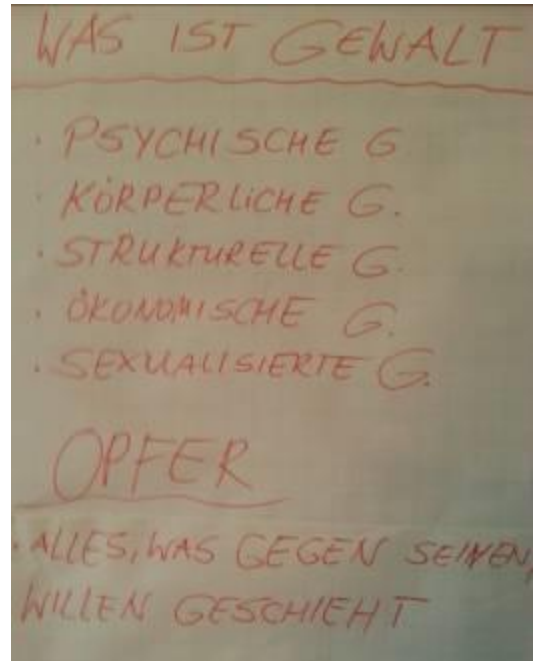 WAS IST GEWALT
· PSYCHISCHE G
· KÖRPERLICHE G.
· STRUKTURELLE G.
· ÖKONOMISCHE G.
· SEXUALISIERTE G.
OPFER
· ALLES, WAS GEGEN SEINEN,
WILLEN GESCHIEHT